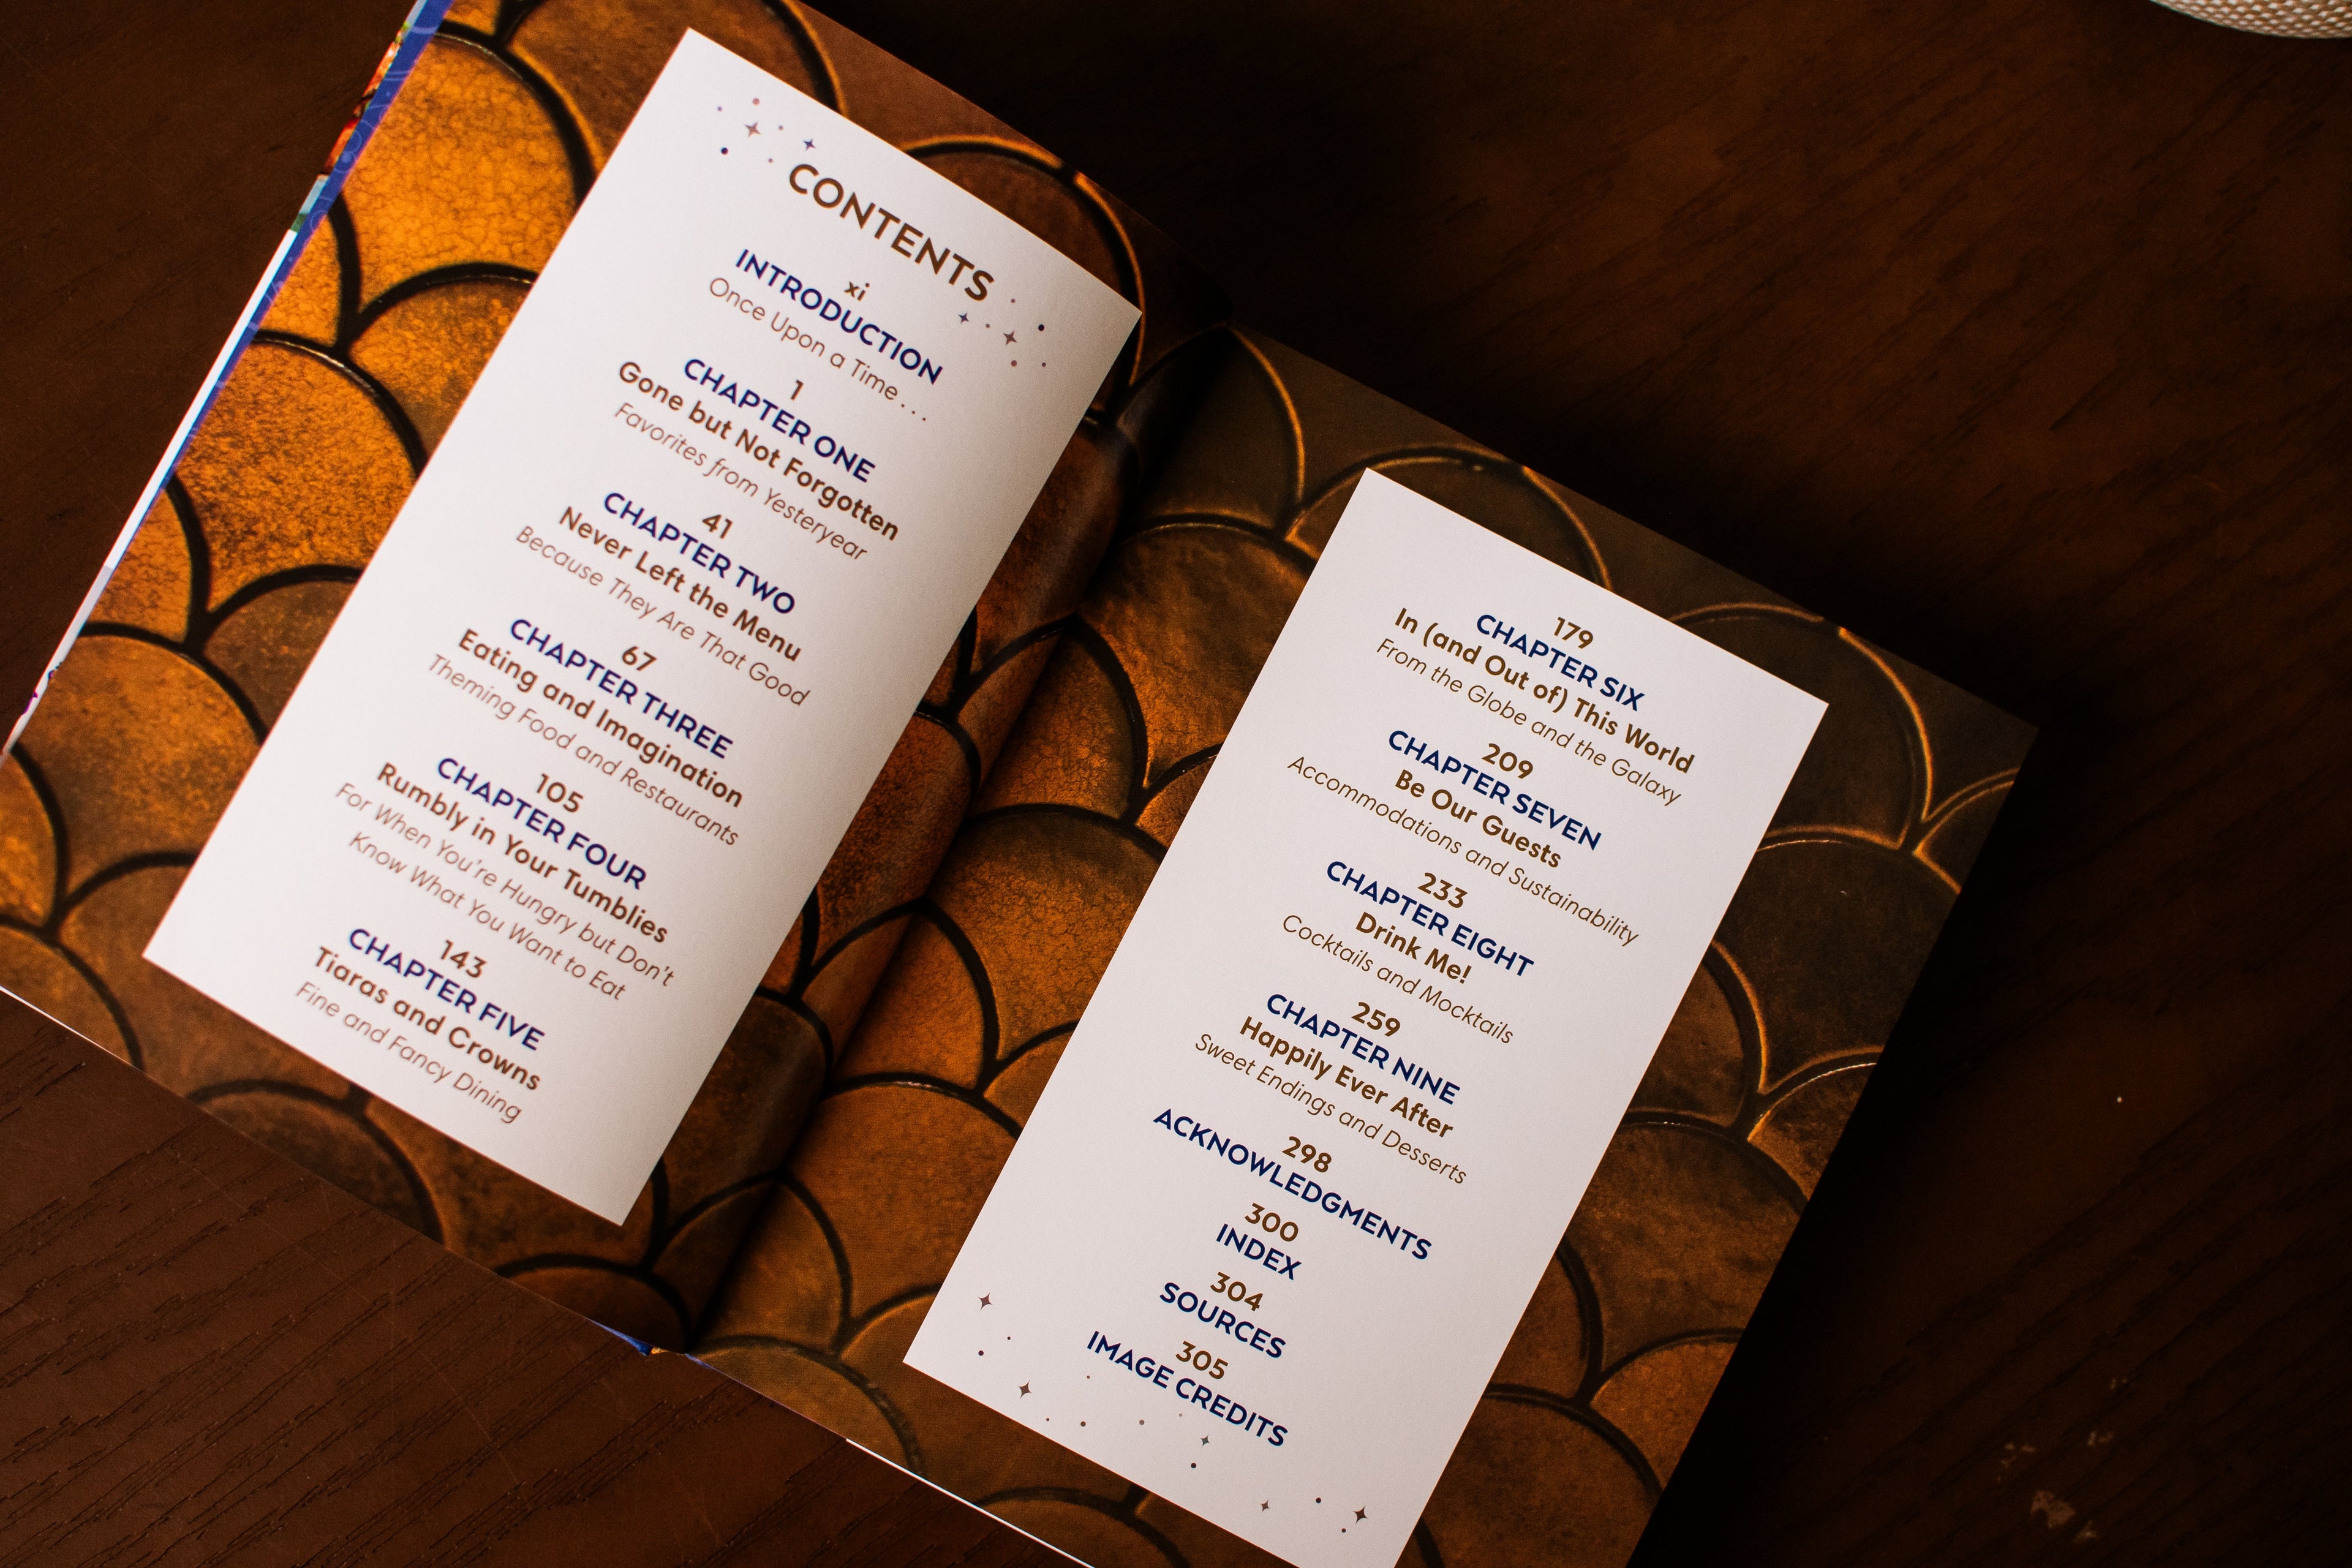 CONTENTS
xi
INTRODUCTION
Once Upon a Time . . .
1
CHAPTER ONE
Gone but Not Forgotten
Favorites from Yesteryear
41
CHAPTER TWO
Never Left the Menu
Because They Are That Good
67
CHAPTER THREE
Eating and Imagination
Theming Food and Restaurants
105
CHAPTER FOUR
Rumbly in Your Tumblies
For When You're Hungry but Don't
Know What You Want to Eat
143
CHAPTER FIVE
Tiaras and Crowns
Fine and Fancy Dining
179
CHAPTER SIX
In (and Out of) This World
From the Globe and the Galaxy
209
CHAPTER SEVEN
Be Our Guests
Accommodations and Sustainability
233
CHAPTER EIGHT
Drink Me!
Cocktails and Mocktails
259
CHAPTER NINE
Happily Ever After
Sweet Endings and Desserts
298
ACKNOWLEDGMENTS
300
INDEX
304
SOURCES
305
IMAGE CREDITS